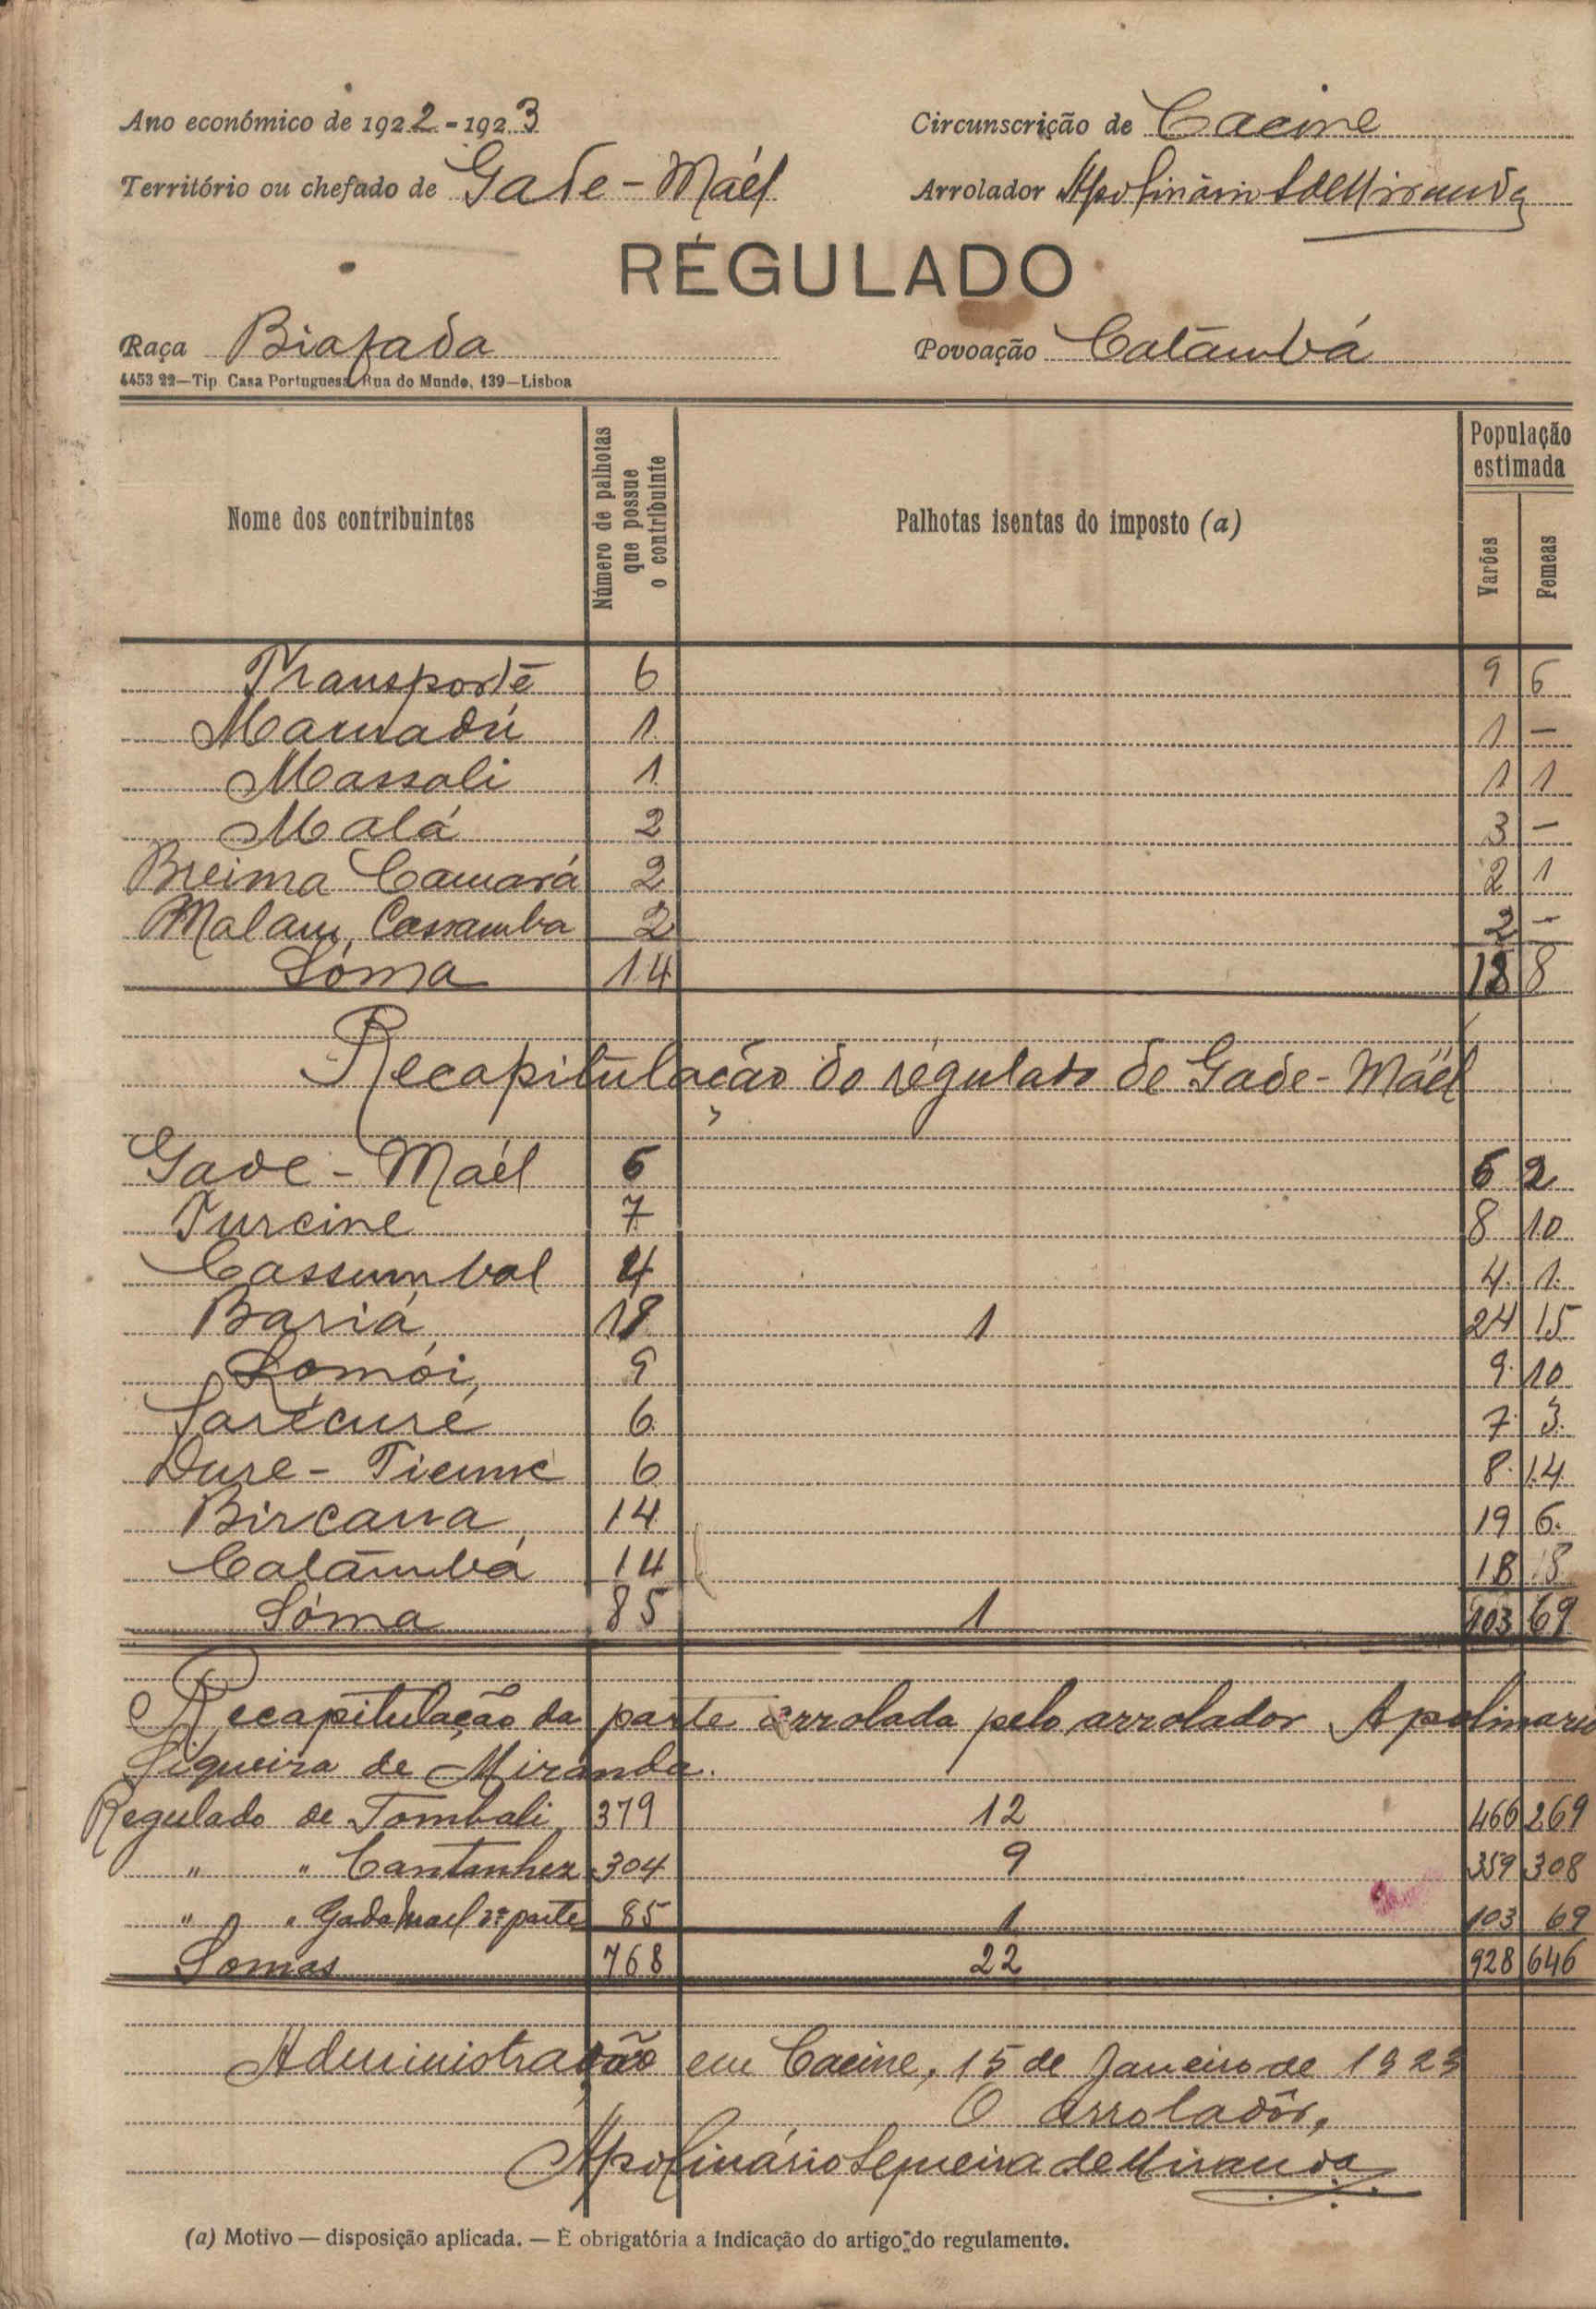 Ano económico de 1922-1923
Circunscrição de Cacine
Território ou chefado de Gade-Maél
Arrolador Apolinário S de Miranda
RÉGULADO
Raça Biafada
Povoação Calãmbá
4453 22—Tip. Casa Portuguesa, Rua do Mundo, 139—Lisboa
Nome dos contribuintes
Número de palhotas que possue o contribuinte
Palhotas isentas do imposto (a)
População estimada
Varões
Femeas
Transporte 6 9 6
Mamadú 1 1 —
Massali 1 1 1
Malá 2 3 —
Breima Camará 2 2 1
Malam Cassamba 2 2 —
Sôma 14 18 8
Recapitulação do régulado de Gade-Maël
Gade-Maél 6 6 2
Turcine 7 8 10
Cassumbal 4 4 1
Bariá 19 1 24 15
Lomói 9 9 10
Sarécuré 6 7 3
Dure-Tieune 6 8 14
Bircana 14 19 6
Calãmbá 14 18 8
Sôma 85 1 103 69
Recapitulação da parte arrolada pelo arrolador Apolinario
Siqueira de Miranda.
Regulado de Tombali 379 12 466 269
" " Cantanhez 304 9 359 308
" " Gadamael 2ª parte 85 1 103 69
Somas 768 22 928 646
Administração em Cacine, 15 de Janeiro de 1923
O arroladôr,
Apolinário Sequeira de Miranda
(a) Motivo — disposição aplicada. — É obrigatória a indicação do artigo do regulamento.